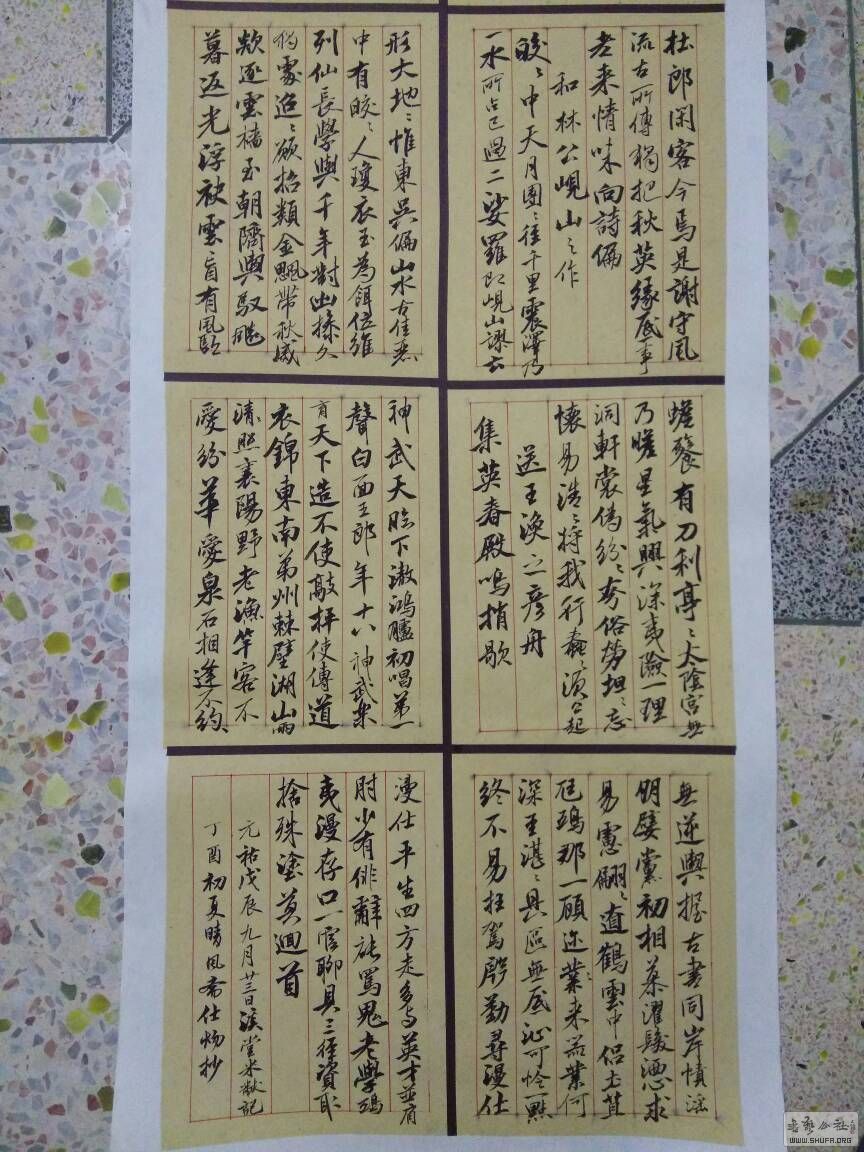 杜郎閑客今焉是謝守風
流古所傳獨把秋英緣底事
老来情味向詩偏
和林公峴山之作
皎〻中天月團〻徑千里震澤乃
一水所占已過二娑羅即峴山謬云
形大地〻惟東吳偏山水古佳麗
中有皎〻人瓊衣玉為餌位維
列仙長學與千年對幽操久
獨處迢〻願招類金颸帶秋威
欻逐雲檣至朝隮輿馭飆
暮返光浮袂雲盲有風驅
蟾餮有刀利亭〻太陰宮無
乃瞻星氣興深夷險一理
洞軒裳偽紛〻夸俗勞坦〻忘
懷易浩〻將我行蠢〻須公起
送王渙之彦舟
集英春殿鳴捎歇
神武天臨下澈鴻臚初唱第一
聲白面王郎年十八神武樂
育天下造不使敲枰使傳道
衣錦東南弟州棘璧湖山兩
清照襄陽野老漁竿客不
愛紛華愛泉石相逢不約
無逆輿握古書同岸幘淫
朋嬖黨初相慕濯髮灑心求
易慮翩〻遼鶴雲中侶土苴
尫鴟那一顧迩業来器業何
深至湛〻具區無底沚可怜一點
終不易枉駕殷勤尋漫仕
漫仕平生四方走多與英才並肩
肘少有俳辭能罵鬼老學鴟
夷漫存口一官聊具三徑資取
捨殊塗莫迴首
元祐戊辰九月廿三日溪堂米黻記
丁酉初夏晴風齋仕炀抄
WWW.SHUFA.ORG